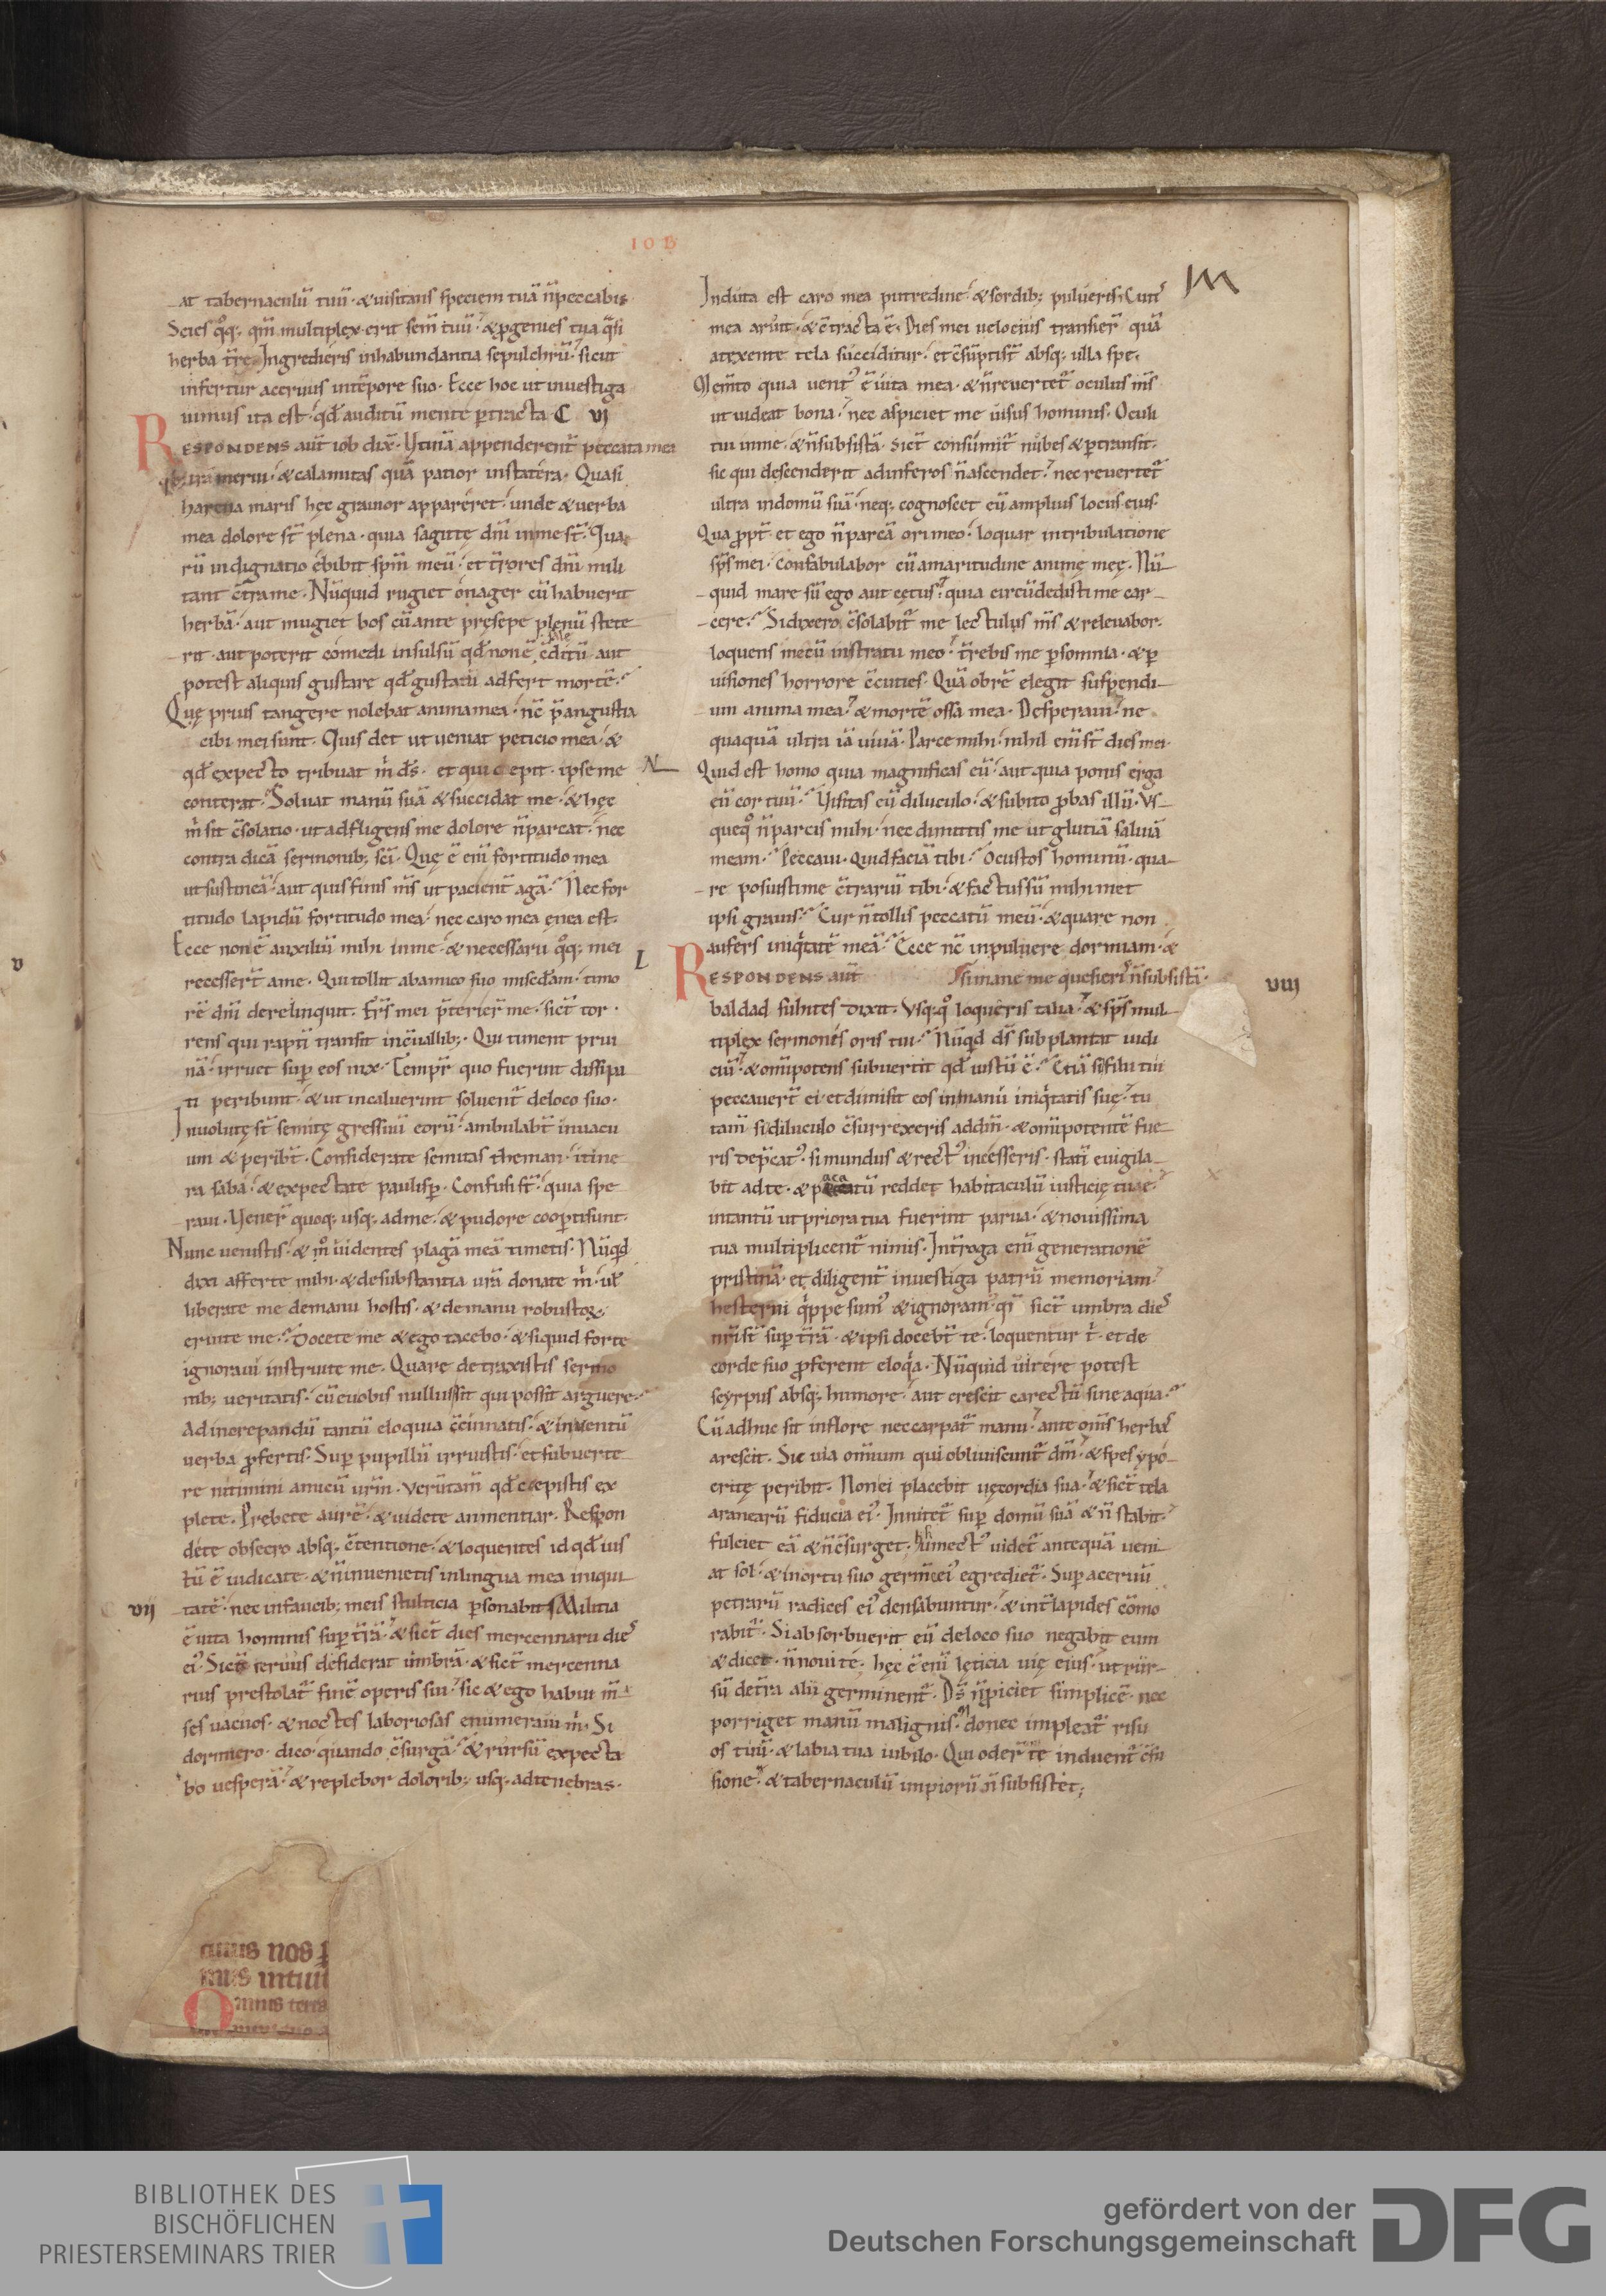 IOB
at tabernaculū tuū· & uisitans speciem tuā ñ peccabis·
Scies qͦq; qm̄ multiplex erit sem̄ tuū· & ꝓgenies tua q̄si
herba t̄rę. Ingredieris in habundantia sepulchrū· sicut
infertur aceruus in tēpore suo· Ecce hoc ut inuestiga
uimus ita est· qd̄ auditū mente ꝑtracta· C VI
RESPONDENS aut̄ iob dix̄· Vtinā appenderent̄ peccata mea
merui· & calamitas quā patior in statera· Quasi
harena maris hęc grauior appareret· unde & uerba
mea dolore st̄ plena· quia sagittę dn̄i in me st̄· Qua
rū indignatio ebibit spm̄ meū· et t̄rores dn̄i mili
tant c̄tra me· Nūquid rugiet onager cū habuerit
herbā· aut mugiet bos cū ante pręsepe plenū stete
rit· aut poterit comedi insulsū qd̄ non ē c̄ditū sale· aut
potest aliquis gustare qd̄ gustatū adfert mortē·
Quę prius tangere nolebat anima mea· nc̄ p̄ angustia
cibi mei sunt· Quis det ut ueniat peticio mea· &
qd̄ expecto tribuat m̄ ds̄· et qui cepit· ipse me
conterat· Soluat manū suā & succidat me· & hęc
m̄ sit c̄solatio· ut adfligens me dolore ñ parcat· nec
contra dicā sermonib; sc̄i· Quę ē eni fortitudo mea
ut sustineā· aut quis finis ms̄ ut pacient̄ agā· Nec for
titudo lapidū fortitudo mea· nec caro mea ęnea est·
Ecce non ē auxiliū mihi in me· & necessarii qͦq; mei
recessert̄ a me· Qui tollit ab amico suo misc̄dam· timo
rē dn̄i derelinquit· Frs̄ mei p̄terier̄ me· sict̄ tor
rens qui raptī transit in c̄uallib;· Qui timent prui
nā· irruet suꝑ eos nix· Tempr̄ quo fuerint dissipa
ti peribunt· & ut incaluerint soluent̄ de loco suo·
Inuolutę st̄ semitę gressuū eorū· ambulabt̄ in uacu
um & peribt̄· Considerate semitas theman· itine
ra saba· & expectate paulisꝑ· Confusi st̄· quia spe
raui· Vener̄ quoq; usq; ad me· & pudore cooꝑti sunt·
Nunc uenistis· & mͦ uidentes plagā meā timetis· Nūqd
dixi afferte mihi· & de substantia ur̄a donate m̄· ul̄
liberate me de manu hostis· & de manu robustoꝝ
eruite me· Docete me & ego tacebo· & si quid forte
ignoraui instruite me· Quare detraxistis sermo
nib; ueritatis· cū e uobis nullus sit qui possit arguere·
Ad increpandū tantū eloquia c̄cinnatis· & in uentū
uerba ꝓfertis· Suꝑ pupillū irruistis· et subuerte
re nitimini amicū urm̄· uerūtam̄ qd̄ cępistis ex
plete· Prebete aurē· & uidete an mentiar· Respon
dete obsecro absq; c̄tentione· & loquentes id qd̄ ius
tū ē iudicate· & ñ inuenietis in lingua mea iniqui
VII
tatē· nec in faucib; meis stulticia ꝑsonabit· Militia
ē uita hominis suꝑ t̄rā· & sict̄ dies mercennarii dieˢ
ei᾽· Sict̄ seruus desiderat umbrā· & sict̄ mercenna
rius prestolat̄ finē operis sui· sic & ego habui m̄
ses uacuos· & noctes laboriosas enumeraui m̄· Si
dormiero· dico· quando c̄surgā· & rursū expecta
bo uesperā· & replebor dolorib; usq; ad tenebras·
M
Induta est caro mea putredine· & sordib; pulueris· Cut᾽
mea aruit· & c̄tracta ē· Dies mei uelocius transier̄ quā
a texente tela succiditur· et c̄sūpti st̄ absq; ulla spe·
Mem̄to quia uent᾽ ē uita mea· & ñ reuertet̄ oculus ms̄
ut uideat bona· nec aspiciet me uisus hominis· Oculi
tui in me· & ñ subsistā· Sict̄ consūmit̄ nubes & ꝑtransit·
sic qui descenderit ad inferos ñ ascendet· nec reuertet̄
ultra in domū suā· neq; cognoscet eū amplius locus eius·
Qua ꝓpt̄ et ego ñ parcā ori meo· loquar in tribulatione
sps̄ mei· confabulabor cū amaritudine animę męę· Nū
N
quid mare sū ego aut cętus· quia circūdedisti me car
cere· Si dixero c̄solabit̄ me lectulus ms̄ & releuabor
loquens mecū in stratu meo· t̄rebis me ꝑ somnia· & ꝑ
uisiones horrore c̄cuties· Quā obrē elegit suspendi
um anima mea· & mortē ossa mea· Desperaui· ne
quaquā ultra iā uiuā· Parce mihi· nihil eni st̄ dies mei·
Quid est homo quia magnificas eū· aut quia ponis erga
eū cor tuū· Visitas eū diluculo· & subito ꝓbas illū· Vs
quequͦ ñ parcis mihi· nec dimittis me ut glutiā saliuā
meam· Peccaui· Quid faciā tibi· O custos hominū· qua
re posuisti me c̄trariū tibi· & factus sū mihimet
ipsi grauis· Cur ñ tollis peccatū meū· & quare non
aufers iniqͥtatē meā· Ecce nc̄ in puluere dormiam· &
L
RESPONDENS aut̄ si mane me quesieri᾽ ñ subsistā·
VIII
baldad suhites dixit· Vsq; qͦ loqueris talia· & sps̄ mul
tiplex sermones oris tui· Nūqd ds̄ subplantat iudi
ciū· & om̄ipotens subuertit qd̄ iustū ē· Etiā si filii tui
peccauert̄ ei· et dimisit eos in manū iniqͥtatis suę· tu
tam̄ si diluculo c̄surrexeris ad dm̄· & om̄ipotentē fue
ris dep̄cat᾽· si mundus & rect᾽ incesseris· statī euigila
bit ad te· & pacatū reddet habitaculū iusticię tuae·
intantū ut priora tua fuerint parua· & nouissima
tua multiplicent̄ nimis· Int̄roga eni generationē
pristinā· et diligent̄ inuestiga patrū memoriam·
hesterni qͥppe sum᾽ & ignoram᾽· qm̄ sict̄ umbra dieˢ
nr̄i st̄ suꝑ t̄rā· & ipsi docebt̄ te· loquentur t̄· et de
corde suo ꝓferent eloqͥa· Nūquid uirere potest
scyrpus absq; humore· aut crescit carectū sine aqua·
Cū adhuc sit in flore nec carpat̄ manu· ante om̄s herbaˢ
arescit· Sic uia omium qui obliuiscunt̄ dm̄· & spes ypo
critę peribit· Non ei placebit uęcordia sua· & sict̄ tela
aranearū fiducia ei᾽· Innitet̄ suꝑ domū suā & ñ stabit·
fulciet eā & ñ c̄surget· humect᾽ uidet̄ antequā ueni
at sol· & in ortu suo germ̄ ei᾽ egrediet̄· Suꝑ aceruū
petrarū radices ei᾽ densabuntur· & int̄ lapides cōmo
rabit̄· Si absorbuerit eū de loco suo negabit eum
& dicet· ñ noui te· hęc ē eni lęticia uię eius· ut rur
sū de t̄ra alii germinent̄· Ds̄ ñ ꝓiciet simplicē· nec
porriget manū malignis· donec impleat̄ risu
os tuū· & labia tua iubilo· Qui oder̄ te induent̄ c̄fu
sione· & tabernaculū impiorū ñ subsistet;
V
nos
O
BIBLIOTHEK DES
BISCHÖFLICHEN
PRIESTERSEMINARS TRIER
gefördert von der
Deutschen Forschungsgemeinschaft
DFG